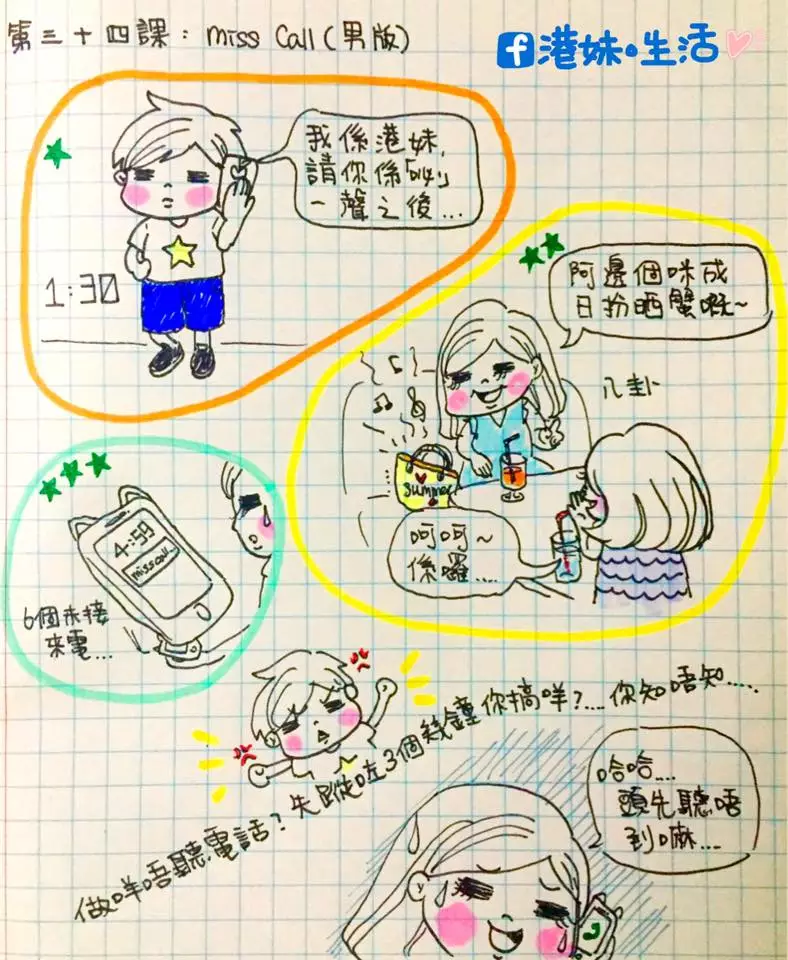 第三十四課：miss Call(男版)
f港妹•生活
我係港妹,
請你係「叫」
一聲之後...
1:30
阿邊個咪成
日扮晒蟹嘅~
八卦
summer
呵呵~
係囉....
4:59
miss call..
6個未接
來電...
做咩唔聽電話？失蹤咗3個幾鐘你搞咩?....你知唔知.....
哈哈....
頭先聽唔
到嘛...